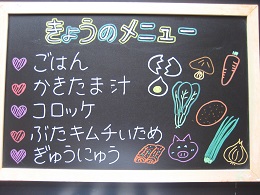 きょうのメニュー
ごはん
かきたま汁
コロッケ
ぶたキムチいため
ぎゅうにゅう